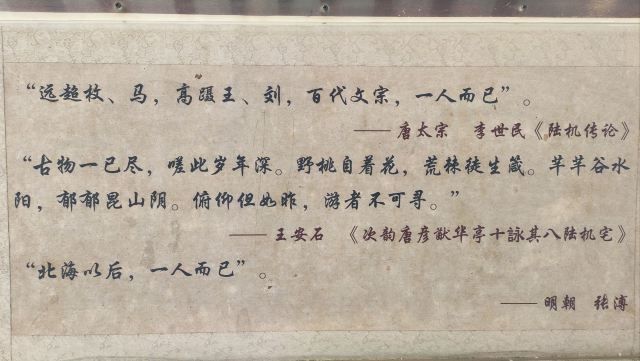 “远超枚、马，高蹑王、刘，百代文宗，一人而已”。
—— 唐太宗 李世民《陆机传论》
“古物一已尽，嗟此岁年深。野桃自着花，荒棘徒生箴。芊芊谷水
阳，郁郁昆山阴。俯仰但如昨，游者不可寻。”
—— 王安石 《次韵唐彦猷华亭十詠其八陆机宅》
“北海以后，一人而已”。
—— 明朝 张溥